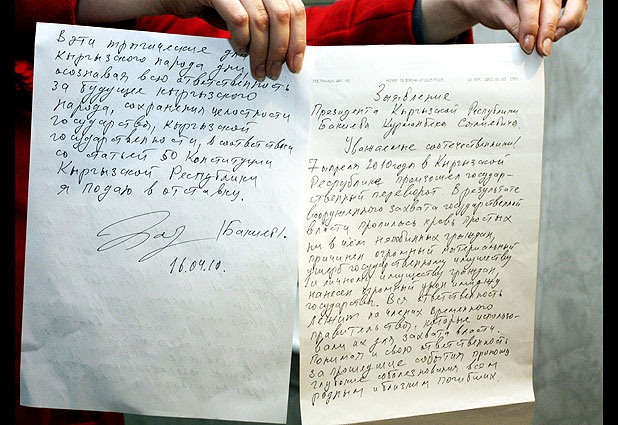 В эти трагические для
Кыргызского народа дни
осознавая всю ответственность
за будущее кыргызского
народа, сохранения целостности
государства, Кыргызской
государственности, в соответствии
со статьей 50 Конституции
Кыргызской Республики
я подаю в отставку.
/Бакиев/.
16.04.10.
Заявление
Президента Кыргызской Республики
Бакиева Курманбека Салиевича
Уважаемые соотечественники!
7 апреля 2010 года в Кыргызской
Республике произошел государ-
ственный переворот. В результате
вооруженного захвата государственной
власти пролилась кровь простых
ни в чем неповинных граждан,
причинен огромный материальный
ущерб государственному имуществу
и личному имуществу граждан,
нанесен огромный урон имиджу
государства. Вся ответственность
лежит на членах временного
правительства, которые использо-
вали их для захвата власти.
Понимая и свою ответственность
за прошедшие события приношу
глубокие соболезнования всем
родным и близким погибших.